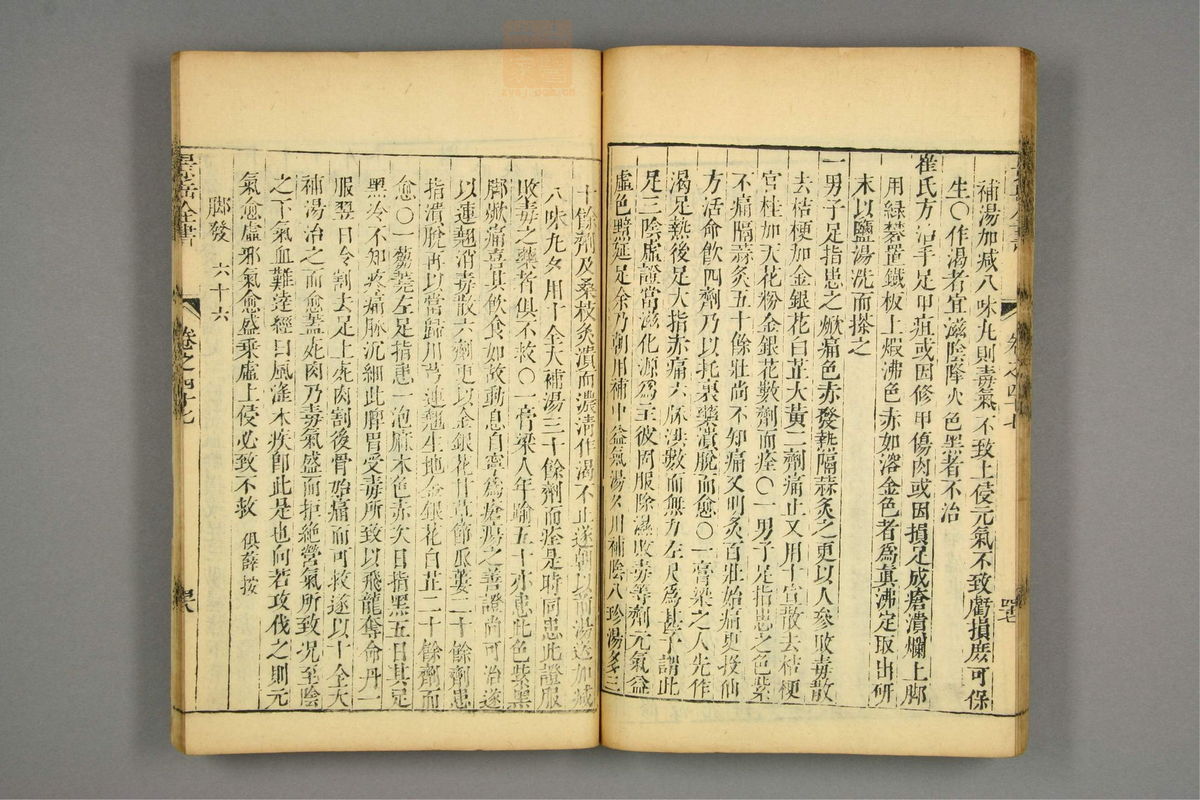 補湯加减八味丸則毒氣不致上侵元氣不致虧損庶可保
生〇作渴者宜滋陰降火色黑者不治
崔氏方治手足甲疽或因修甲傷肉或因損足成瘡潰爛上脚
用綠礬置鐵板上煆沸色赤如溶金色者爲眞沸定取出研
末以鹽湯洗而搽之
一男子足指患之焮痛色赤發熱隔蒜灸之更以人參敗毒散
去桔梗加金銀花白芷大黃二劑痛止又用十宣散去桔梗
官桂加天花粉金銀花數劑而痊〇一男子足指患之色紫
不痛隔蒜灸五十餘壯尚不知痛又明灸百壯始痛更投仙
方活命飲四劑乃以托裏藥潰脫而愈〇一膏粱之人先作
渴足熱後足大指赤痛六脉洪數而無力左尺爲甚予謂此
足三陰虛證當滋化源爲主彼因服除濕敗毒等劑元氣益
虛色黯延足余乃朝用補中益氣湯夕用補陰八珍湯各三
十餘劑及桑枝灸潰而濃清作渴不止遂朝以前湯送加减
八味丸夕用十全大補湯三十餘劑而痊是時同患此證服
敗毒之藥者俱不救〇一膏粱人年踰五十亦患此色紫黑
脚焮痛喜其飲食如故動息自寧爲瘡瘍之善證尚可治遂
以連翹消毒散六劑更以金銀花甘草節瓜蔞二十餘劑患
指潰脫再以當歸川芎連翹生地金銀花白芷二十餘劑而
愈〇一薐左足指患一泡麻木色赤次日指黑五日其足
黑冷不知疼痛脉沉細此脾胃受毒所致以飛龍奪命丹一
服翌日令割去足上死肉割後骨始痛而可救遂以十全大
補湯治之而愈蓋死肉乃毒氣盛而拒絶營氣所致况至陰
之下氣血難達經曰風淫末疾卽此是也向若攻伐之則元
氣愈虛邪氣愈盛乘虛上侵必致不救 俱薛按
脚發 六十六
卷之四十七